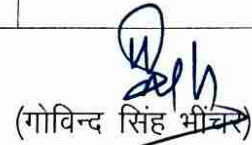 (गोविन्द सिंह भींचर)